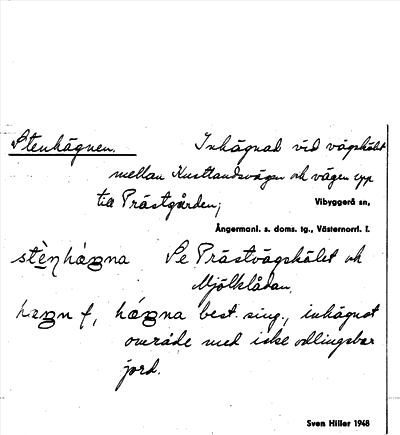 Stenhägnen. Inhägnad vid vägskälet
mellan Kustlandsvägen och vägen upp
till Prästgården; Vibyggerå sn,
Ångermanl. s. doms. tg., Västernorrl. l.
Se Prästvägskälet och
Mjölklådan.
best. sing., inhägnat
område med icke odlingsbar
jord.
Sven Hiller 1948